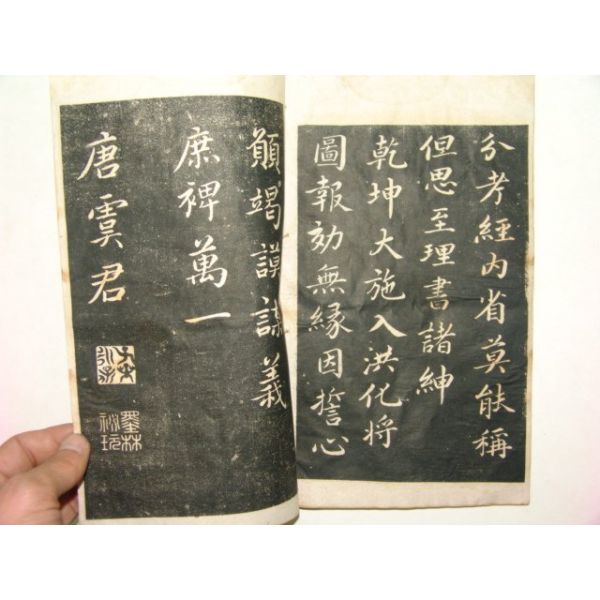 分考經内省莫能稱
但思至理書諸紳
乾坤大施入洪化将
圖報効無縁因誓心
願竭謨謀義
庶裨萬一
唐虞君
墨林
祕玩